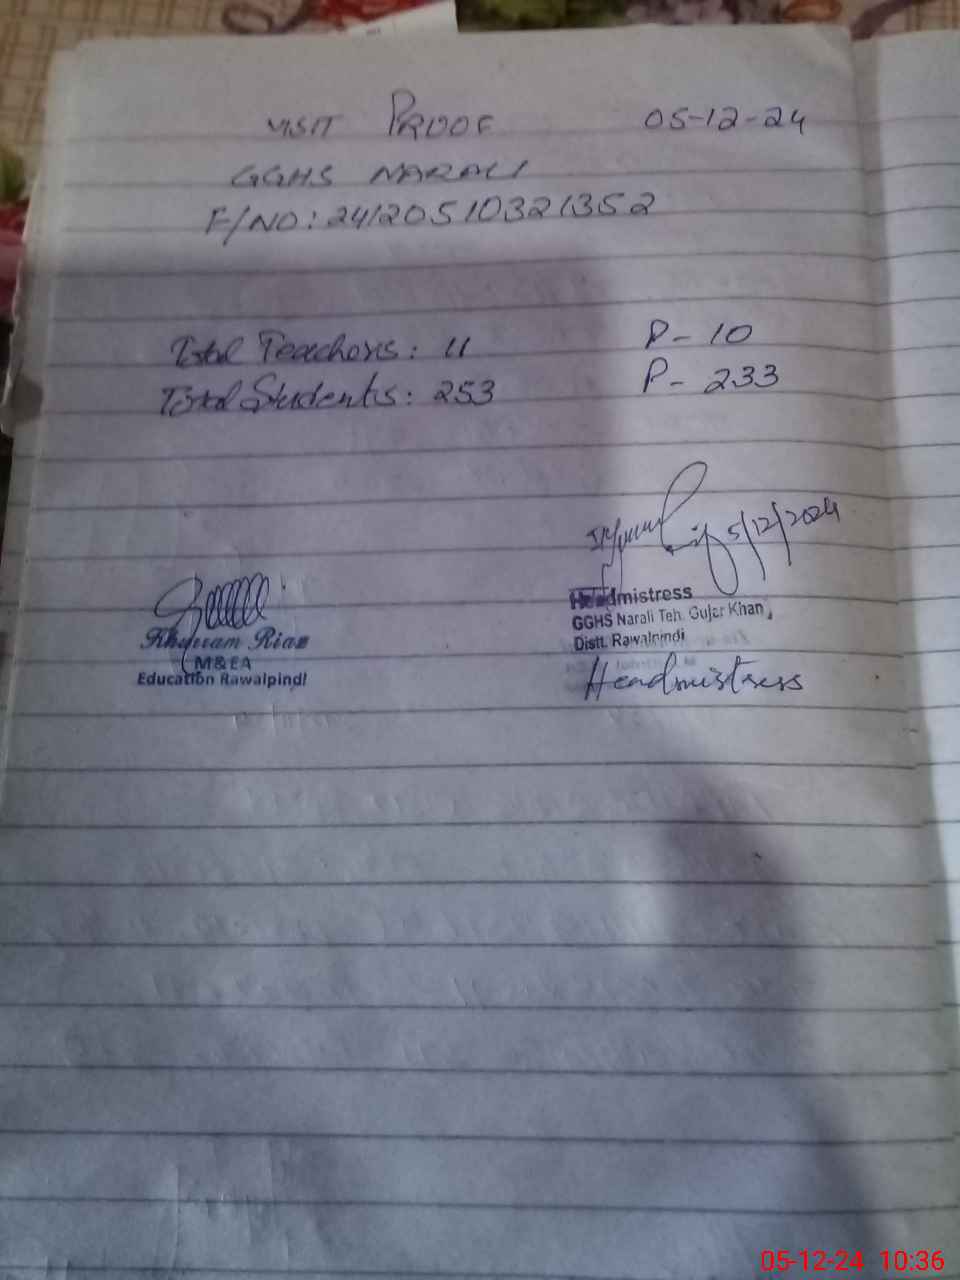 VISIT PROOF 05-12-24
GGHS NARALI
F/NO: 24120510321352
Total Teachers: 11 P- 10
Total Students: 253 P- 233
5/12/2024
Headmistress
GGHS Narali Teh. Gujar Khan
Distt. Rawalpindi
Headmistress
Khurram Riaz
M&EA
Education Rawalpindi
05-12-24 10:36